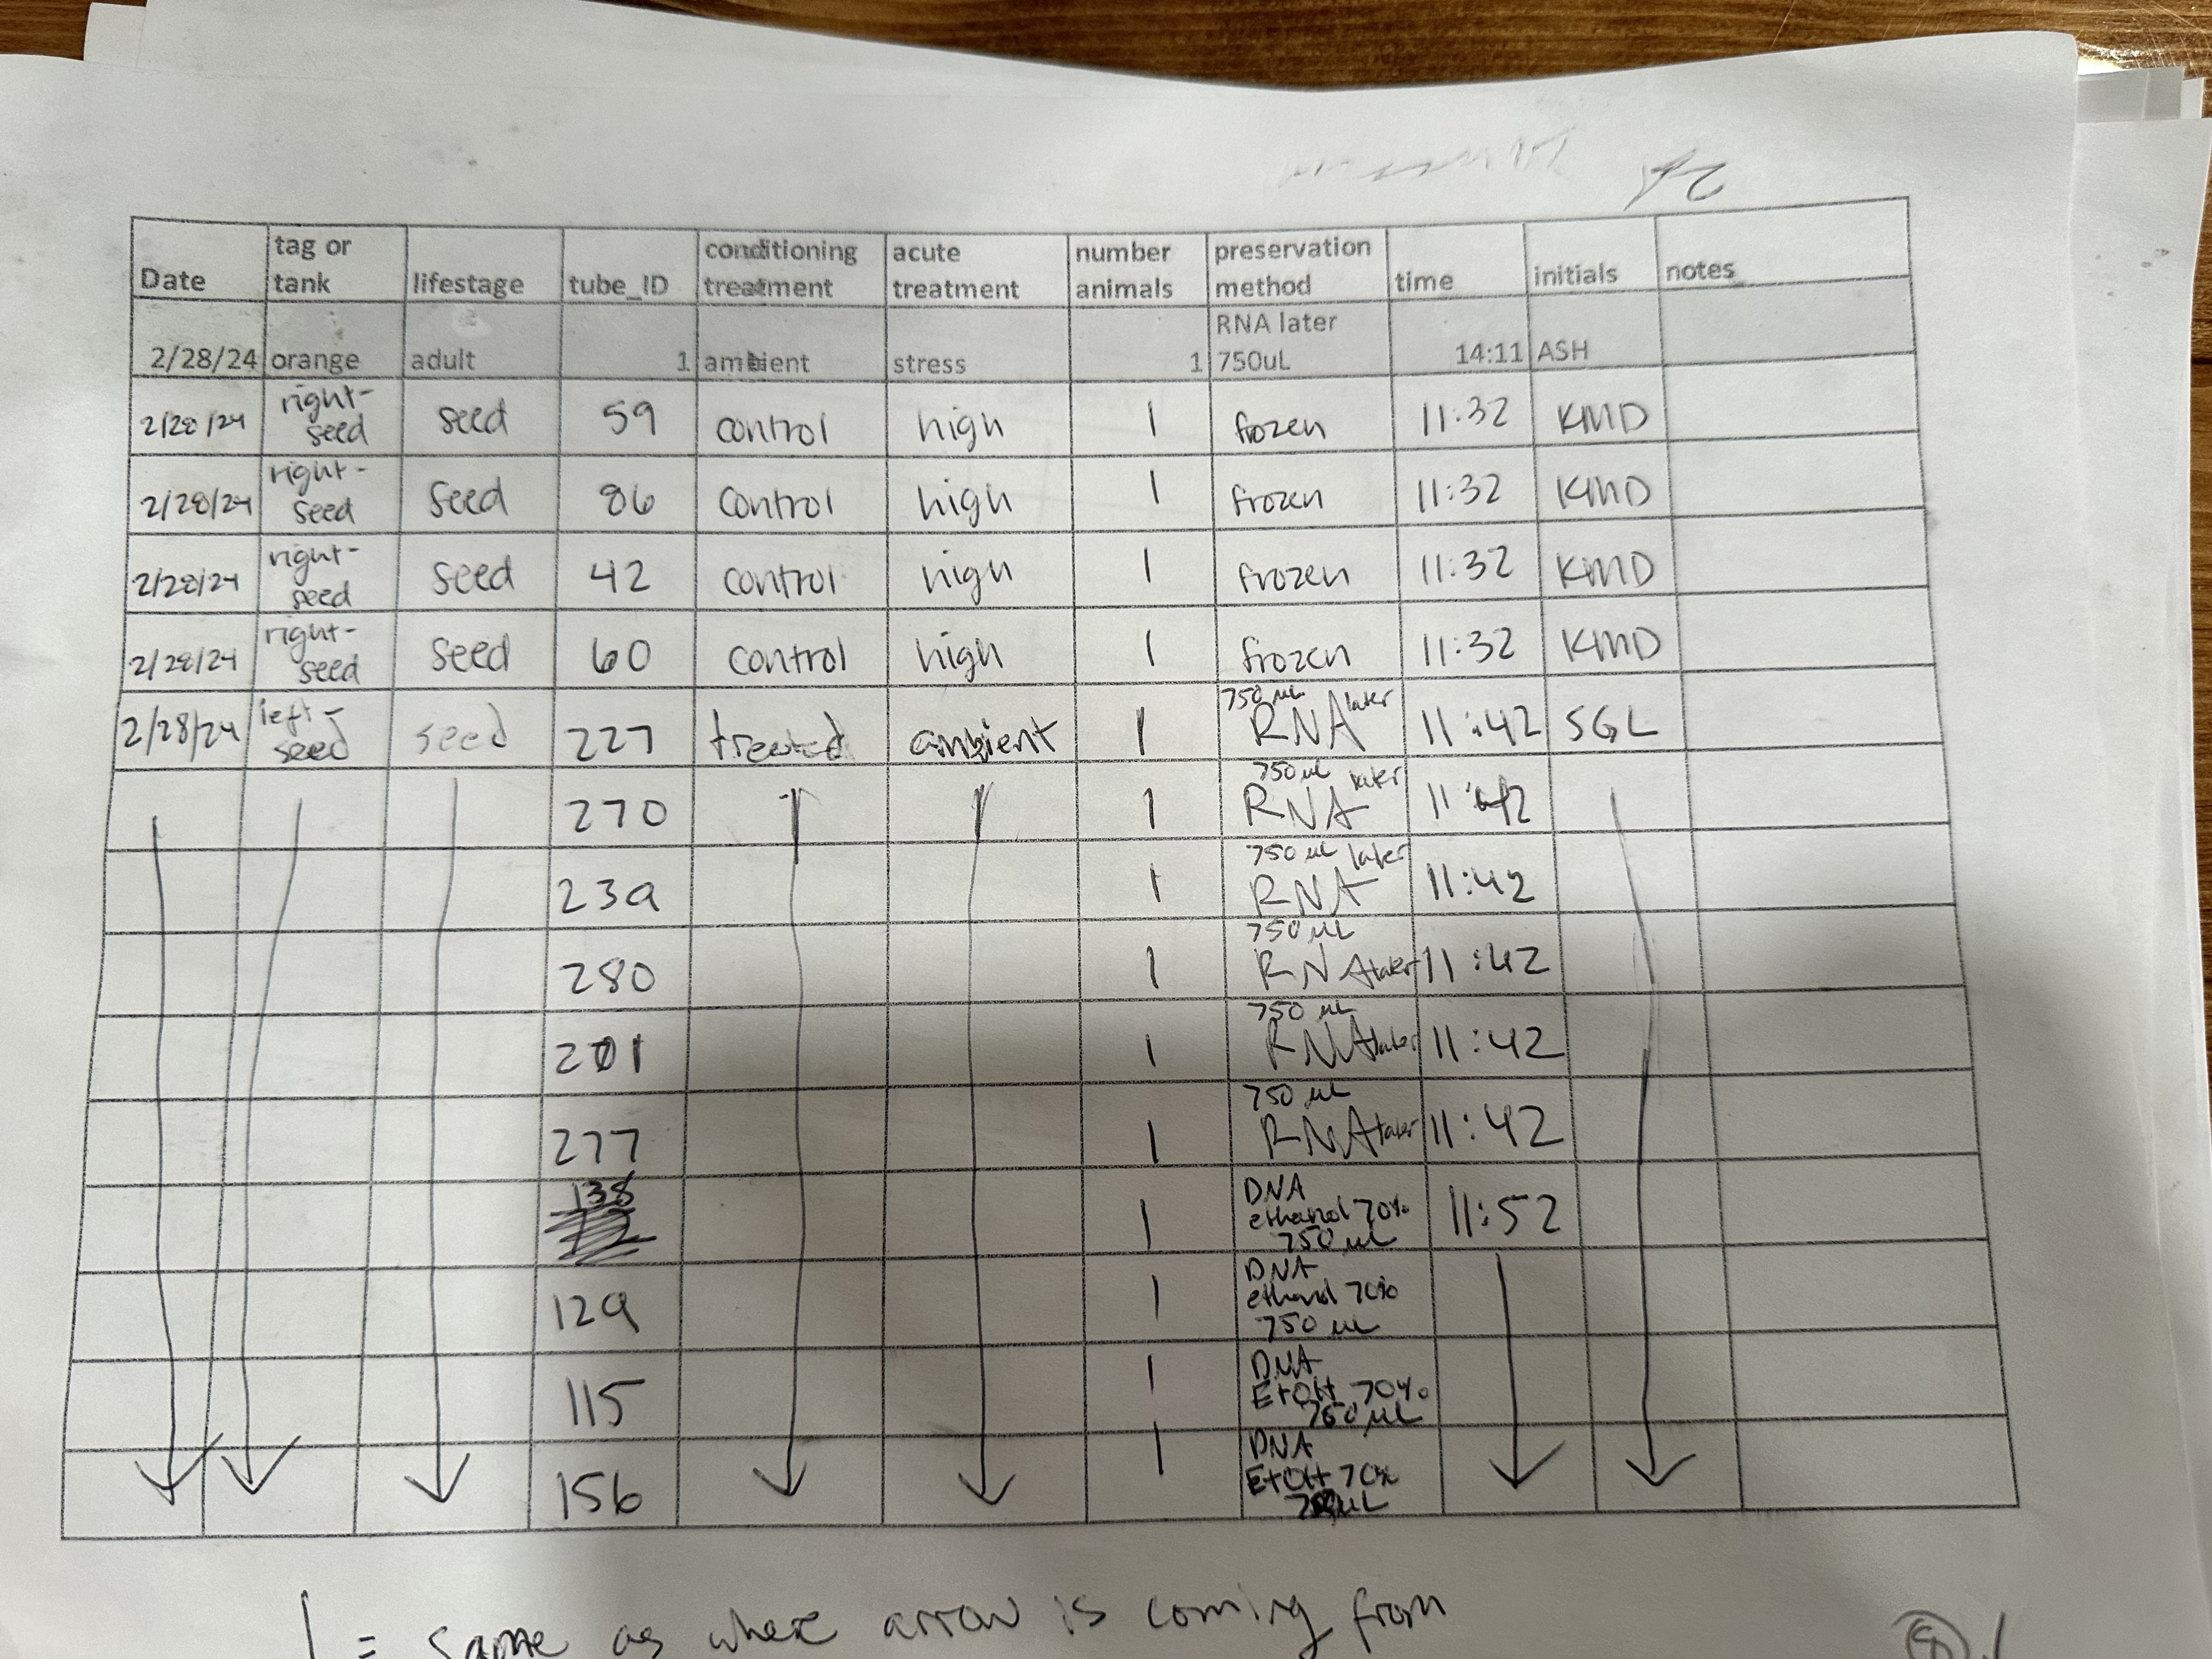 Date tag or tank lifestage tube_ID conditioning treatment acute treatment number animals preservation method time initials notes
2/28/24 orange adult 1 ambient stress 1 RNA later 750uL 14:11 ASH
2/28/24 right-seed seed 59 control high 1 frozen 11:32 KMD
2/28/24 right-seed seed 86 control high 1 frozen 11:32 KMD
2/28/24 right-seed seed 42 control high 1 frozen 11:32 KMD
2/28/24 right-seed seed 60 control high 1 frozen 11:32 KMD
2/28/24 left-seed seed 227 treated ambient 1 750 uL RNA later 11:42 SGL
270 1 750 uL RNA later 11:42
239 1 750 uL RNA later 11:42
280 1 750 uL RNA later 11:42
201 1 750 uL RNA later 11:42
277 1 750 uL RNA later 11:42
138 1 DNA ethanol 70% 750 uL 11:52
129 1 DNA ethanol 70% 750 uL
115 1 DNA EtOH 70% 760 uL
156 1 DNA EtOH 70% 750 uL
= same as where arrow is coming from